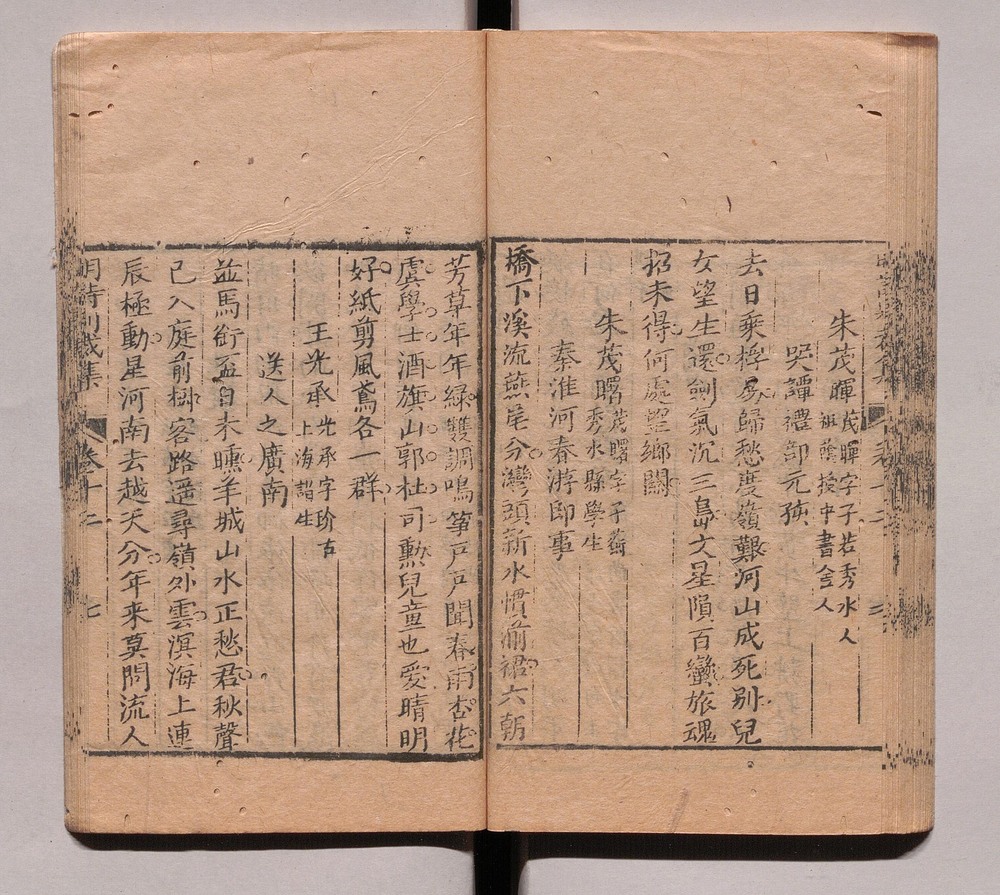 朱茂暉 茂暉字子若秀水人
祖蔭授中書舍人
哭譚禮部元孩
去日乘桴易歸愁度嶺艱河山成死别兒
女望生還劍氣沉三島文星隕百蠻旅魂
招未得何處望鄉關
朱茂曙 茂曙字子蘅
秀水縣學生
秦淮河春游即事
橋下溪流燕尾分灣頭新水慣湔裙六朝
芳草年年緑雙調鳴箏戸戸聞春雨杏花
虞學士酒旗山郭杜司勲兒童也愛晴明
好紙剪風鳶各一群
王光承 光承字玠右
上海諸生
送人之廣南
並馬銜盃白未曛羊城山水正愁君秋聲
已入庭前樹客路遥尋嶺外雲溟海上連
辰極動星河南去越天分年來莫問流人
明詩别裁集 卷十二 七